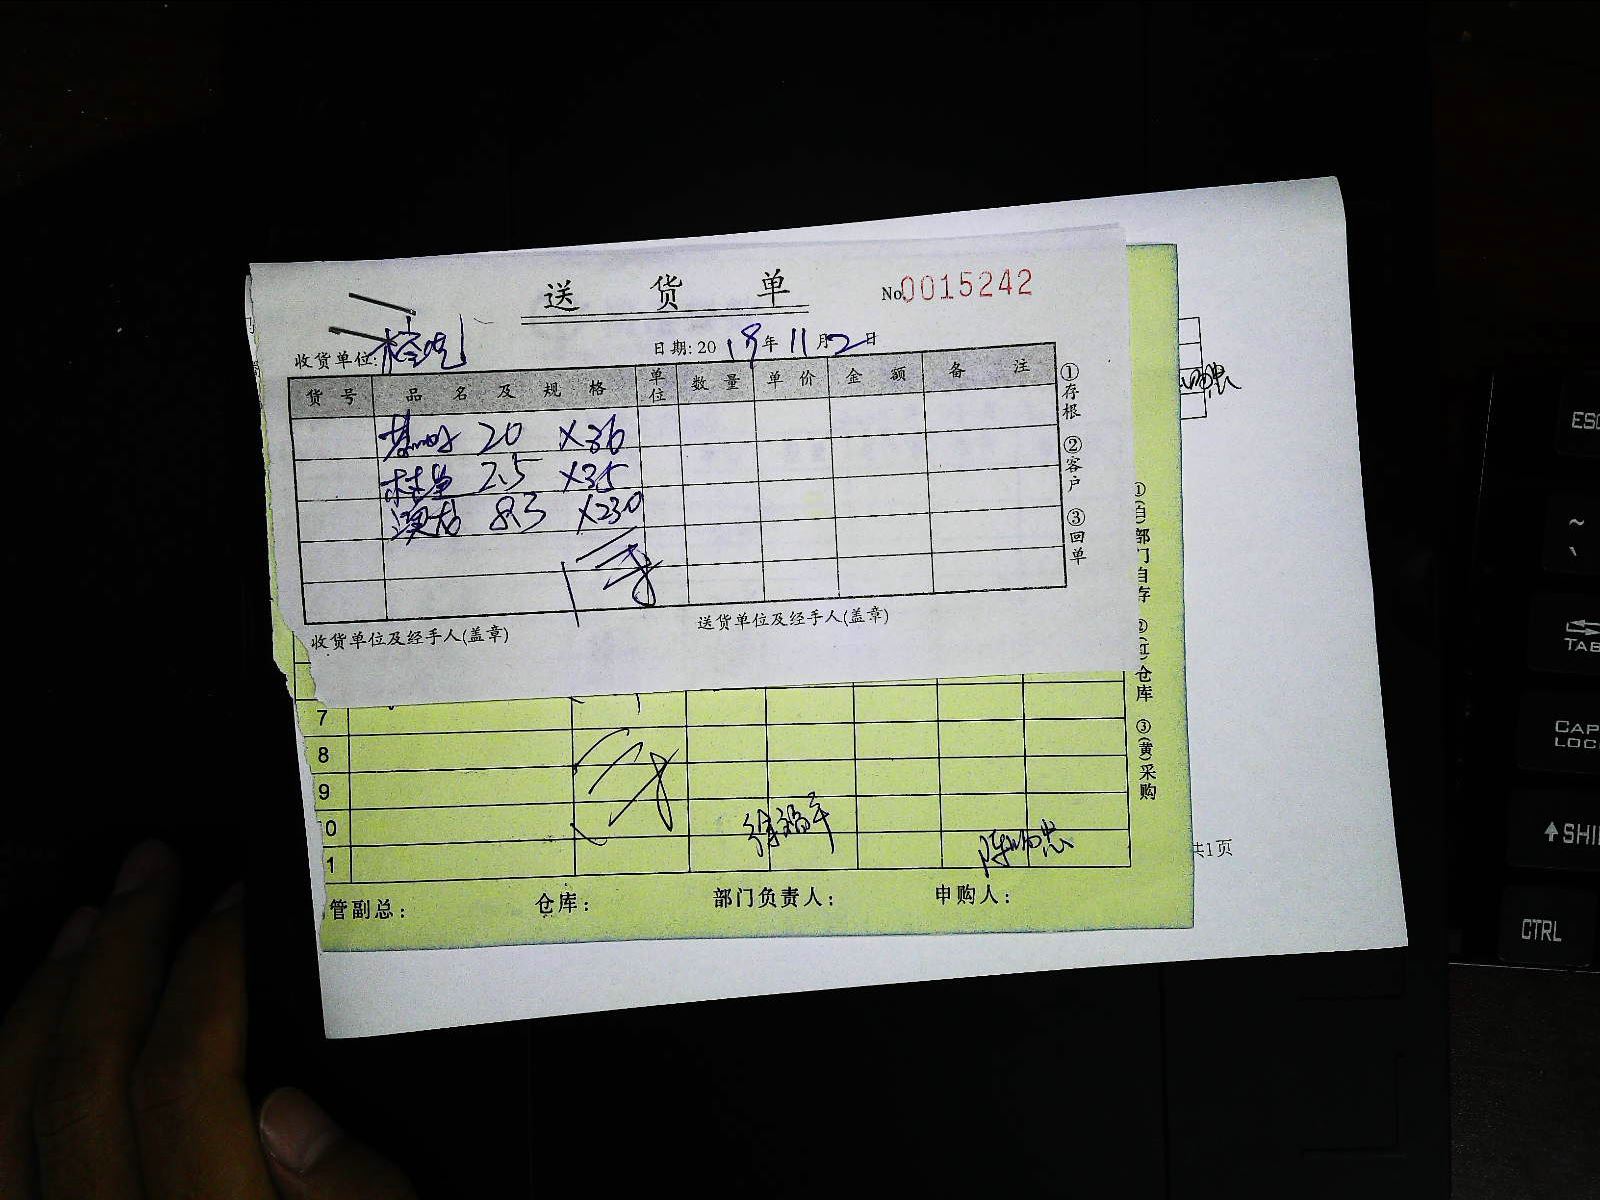 送 货 单
No.0015242
收货单位:
日期: 2019年11月2日
货号 品名及规格 单位 数量 单价 金额 备注
20 ×36
2.5 ×35
澳龙 8.3 ×230
①存根 ②客户 ③回单
收货单位及经手人(盖章)
送货单位及经手人(盖章)
7
8
9
0
1
徐福平
管副总:
仓库:
部门负责人:
申购人:
①(白)部门自存 ②(红)仓库 ③(黄)采购
共1页
ESC
~
`
TAB
CAP
LOC
SHI
CTRL